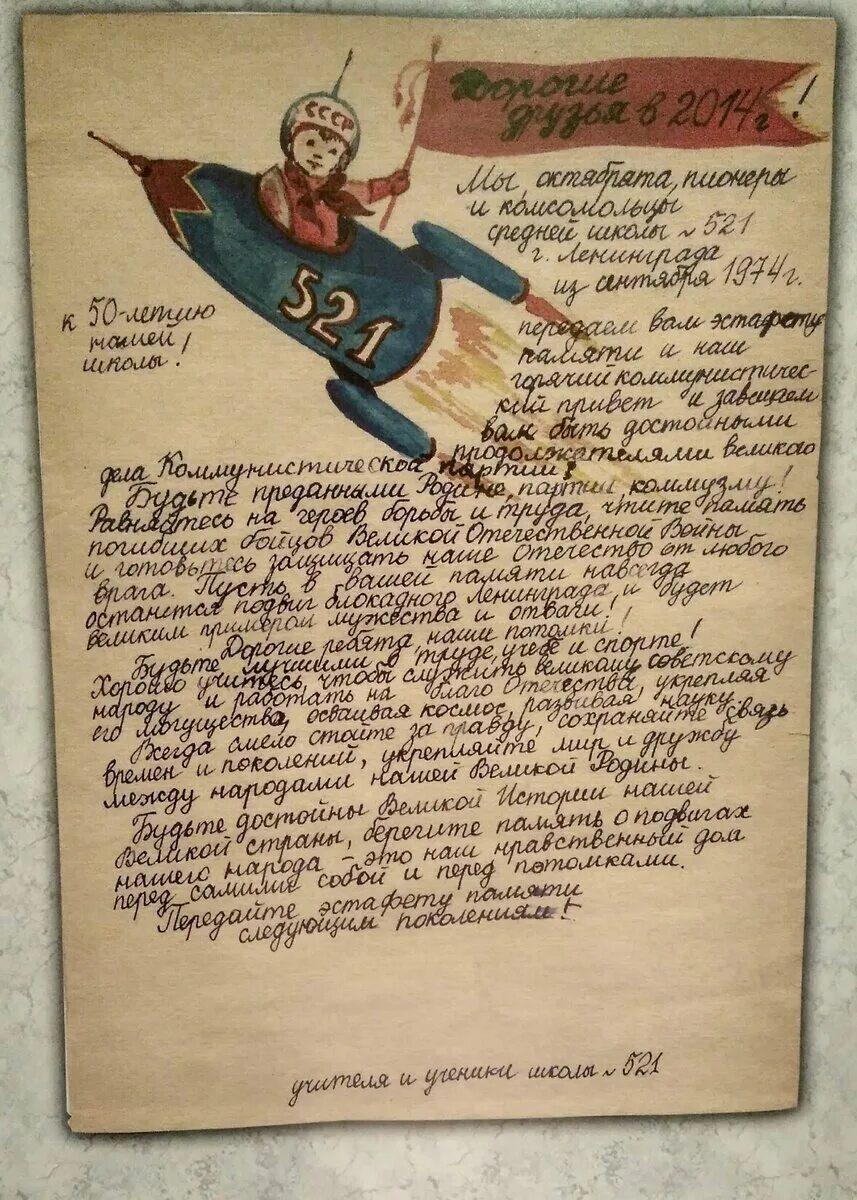 Дорогие
друзья в 2014 г!
СССР
521
к 50-летию
нашей
школы!
Мы, октябрата, пионеры
и комсомольцы
средней школы № 521
г. Ленинграда
из сентября 1974 г.
передаем вам эстафету
памяти и наш
горячий коммунистичес-
кий привет и завещаем
вам быть достойными
продолжателями великого
дела Коммунистической партии!
Будьте преданными Родине, партии, коммузму!
Равняйтесь на героев борьбы и труда, чтите память
погибших бойцов Великой Отечественной Войны
и готовьтесь защищать наше Отечество от любого
врага. Пусть в вашей памяти навсегда
останется подвиг блокадного Ленинграда, и будет
великим примером мужества и отваги!
Дорогие ребята, наши потомки!
Будьте лучшими в труде, учебе и спорте!
Хорошо учитесь, чтобы служить великому советскому
народу и работать на благо Отечества, укрепляя
его могущество, осваивая космос, развивая науку.
Всегда смело стойте за правду, сохраняйте связь
времен и поколений, укрепляйте мир и дружбу
между народами нашей Великой Родины.
Будьте достойны Великой Истории нашей
Великой страны, берегите память о подвигах
нашего народа - это наш нравственный долг
перед самими собой и перед потомками.
Передайте эстафету памяти
следующим поколениям!
учителя и ученики школы № 521